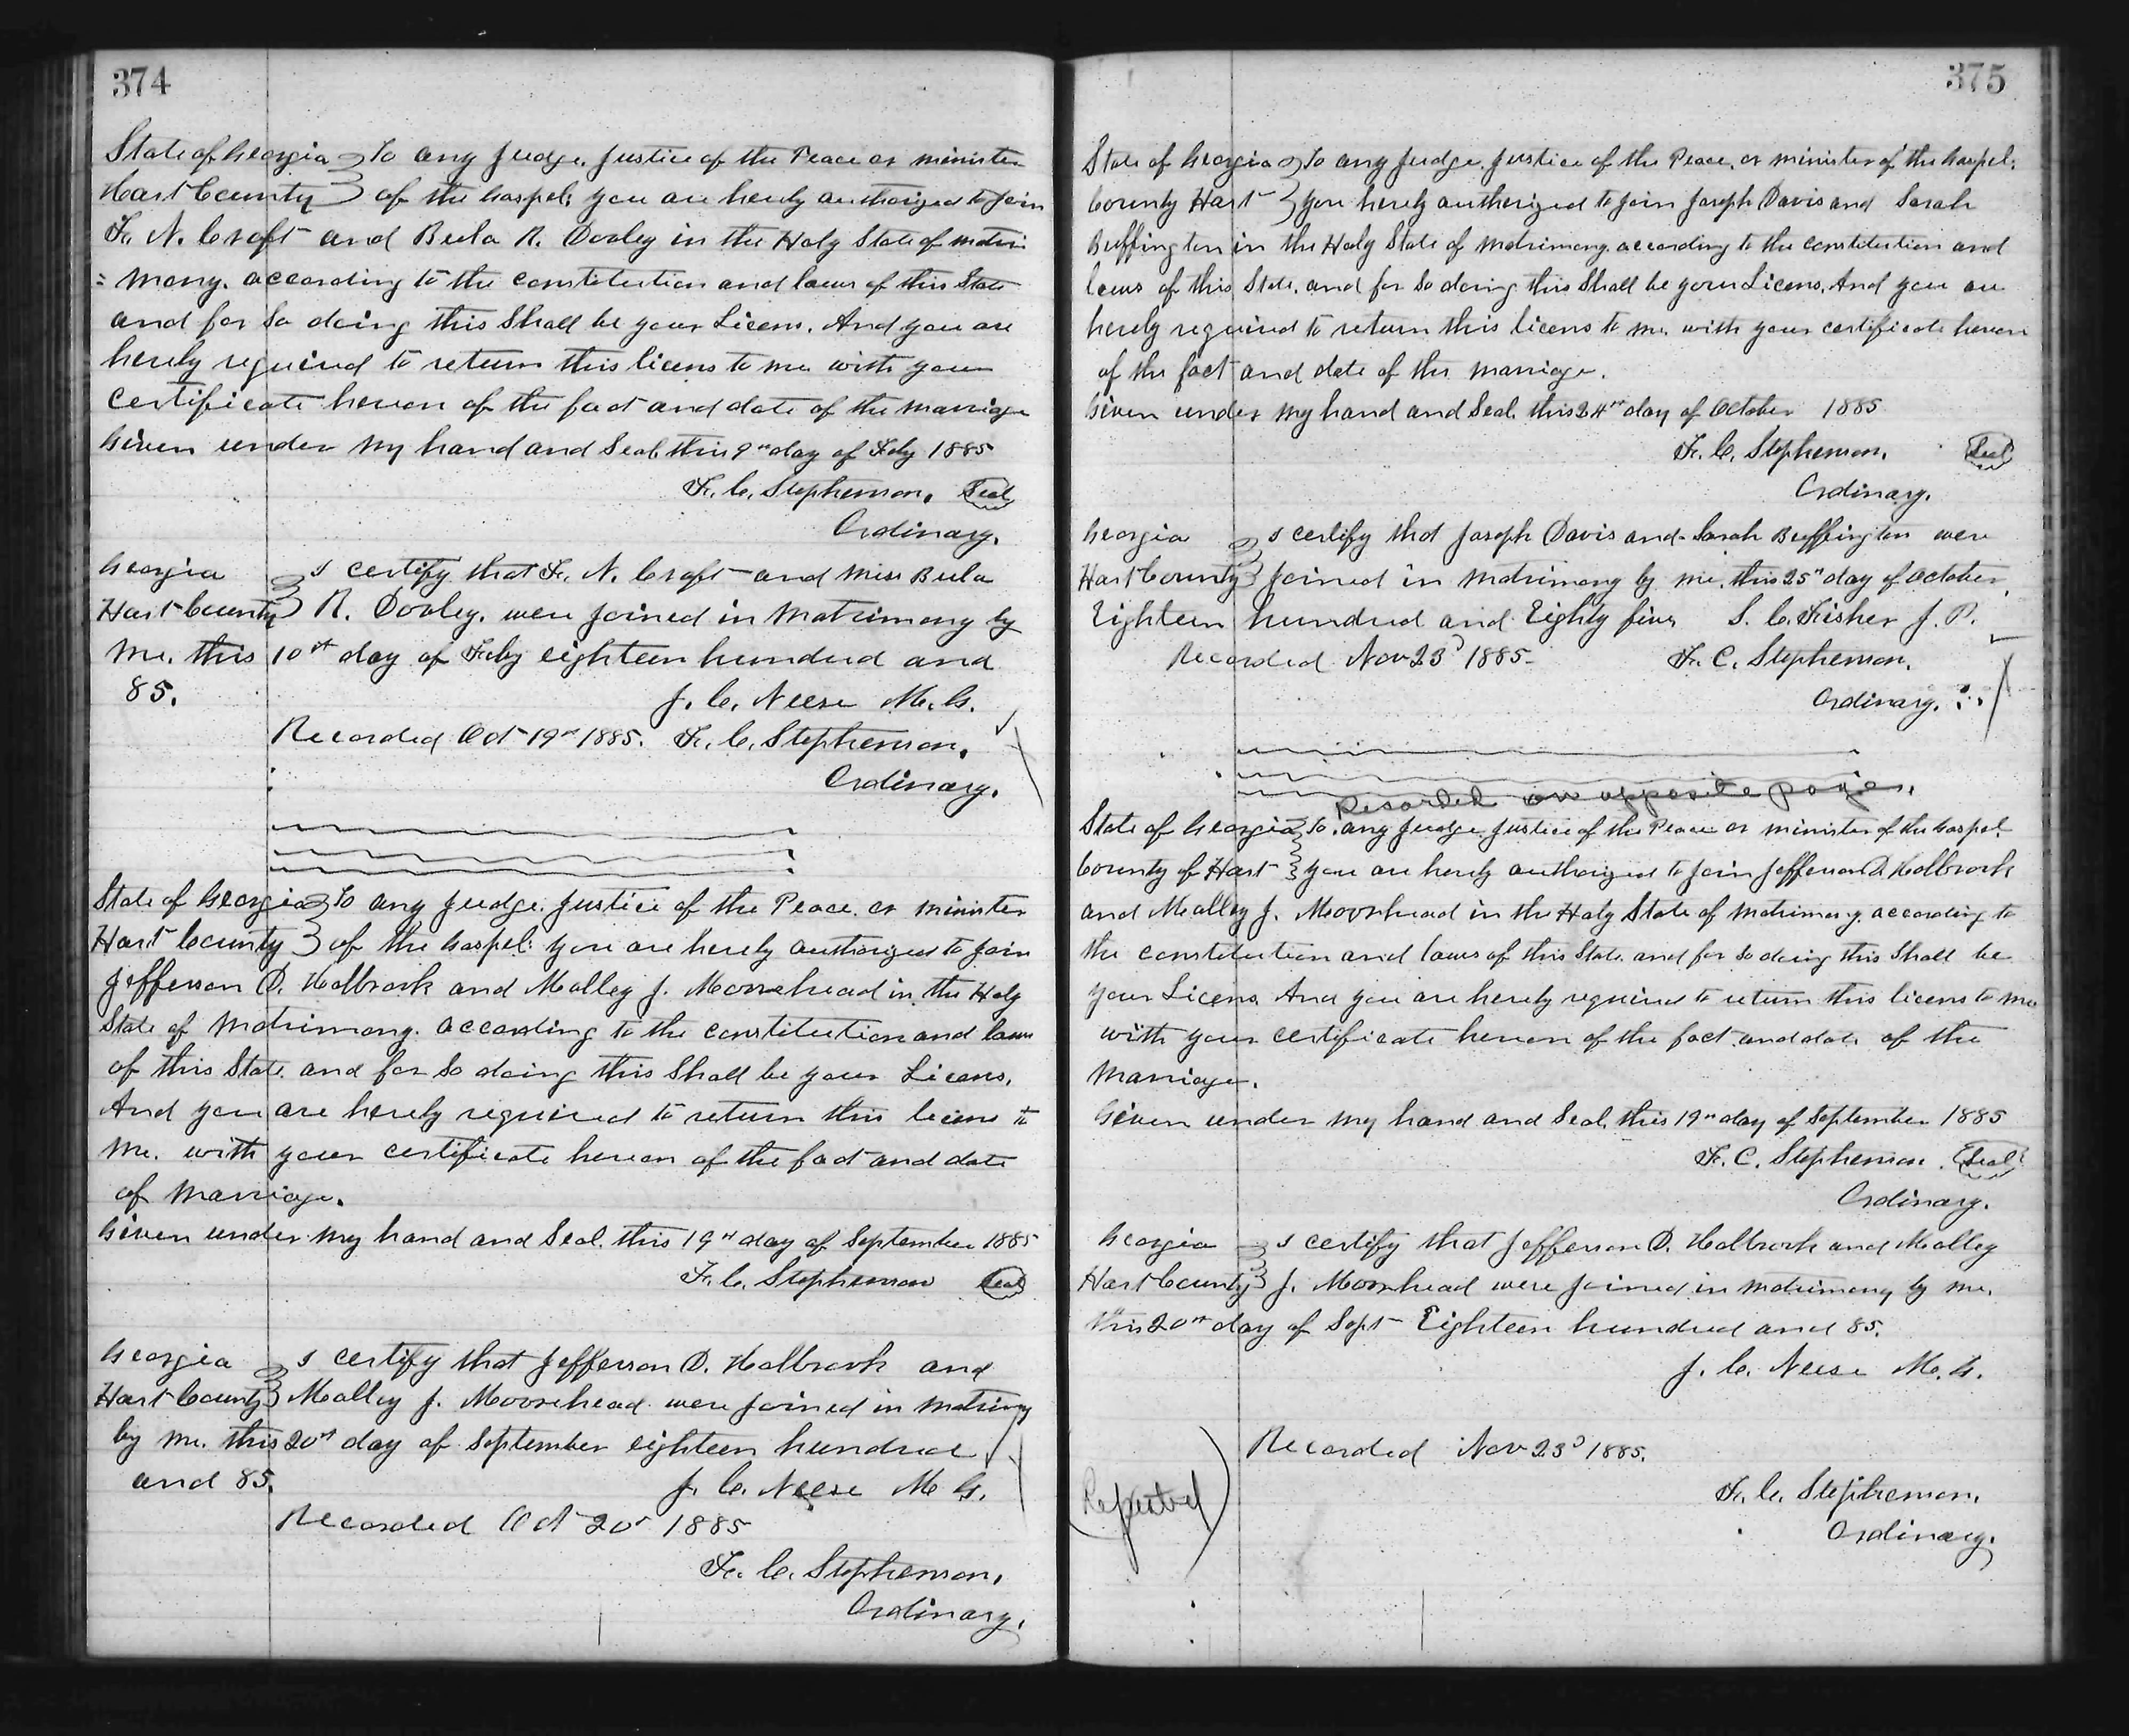 374
State of Georgia To any Judge. Justice of the Peace or minister
Hart County of the Gospel; you are hereby authorized to join
F. N. Croft and Beula R. Dooley in the Holy State of matri
= mony. according to the constitution and laws of this State
and for So doing this Shall be your Licens. And you are
hereby required to return this licens to me with your
Certificate hereon of the fact and date of the marriage
Given under my hand and Seal this 9th day of Feby 1885
F. C. Stephenson. Seal
Ordinary.
Georgia I certify that F. N. Croft and Miss Beula
Hart County R. Dooley. were joined in Matrimony by
me. this 10th day of Feby eighteen hundred and
85. J. C. Neese M. G.
Recorded Oct 19th 1885. F. C. Stephenson.
Ordinary.
State of Georgia To any Judge. Justice of the Peace. or minister
Hart County of the Gospel: you are hereby authorized to join
Jefferson D. Holbrook and Malley J. Moorehead in the Holy
State of Matrimony. according to the constitution and laws
of this State. and for So doing this Shall be your Licens.
And you are hereby required to return this licens to
me. with your certificate hereon of the fact and date
of Marriage.
Given under my hand and Seal. this 19th day of September 1885
F. C. Stephenson Seal
Georgia I certify that Jefferson D. Holbrook and
Hart County Malley J. Moorehead were joined in matrimony
by me. this 20th day of September eighteen hundred
and 85. J. C. Neese M G.
Recorded Oct 20th 1885
F. C. Stephenson.
Ordinary.
375
State of Georgia To any Judge. Justice of the Peace. or minister of the Gospel;
County Hart you hereby autherized to join Joseph Davis and Sarah
Buffington in the Holy State of Matrimony. according to the constitution and
laws of this State. and for So doing this Shall be your Licens. And you are
hereby required to return this licens to me. with your certificate hereon
of the fact and date of the marriage.
Given under my hand and Seal. this 24th day of October 1885
F. C. Stephenson. Seal
Ordinary.
Georgia I certify that Joseph Davis and Sarah Buffington were
Hart County joined in matrimony by me. this 25th day of October,
Eighteen hundred and Eighty five S. C. Fisher J. P.
Recorded Nov 23d 1885- F. C. Stephenson.
Ordinary.
Recorded on opposite page.
State of Georgia To any Judge Justice of the Peace or minister of the Gospel.
County of Hart you are hereby authorized to join Jefferson D. Holbrook
and Malley J. Moorehead in the Holy State of Matrimony. according to
the constitution and laws of this State. and for So doing this Shall be
your Licens. And you are hereby required to return this licens to me
with your certificate hereon of the fact. and date of the
Marriage.
Given under my hand and Seal. this 19th day of September 1885
F. C. Stephenson. Seal
Ordinary.
Georgia I certify that Jefferson D. Holbrook and Malley
Hart County J. Moorehead were joined in matrimony by me.
this 20th day of Sept Eighteen hundred and 85.
J. C. Neese M. G.
Recorded Nov 23d 1885.
(Repeated)
F. C. Stephenson.
Ordinary.